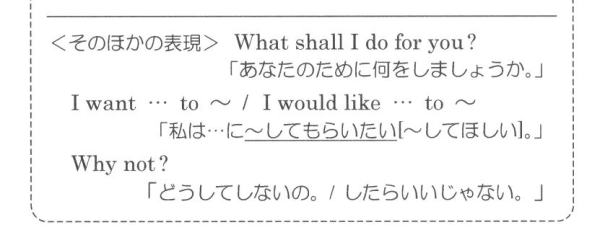 ＜そのほかの表現＞ What shall I do for you?
「あなたのために何をしましょうか。」
I want … to ～ / I would like … to ～
「私は…に～してもらいたい[～してほしい]。」
Why not?
「どうしてしないの。/ したらいいじゃない。」